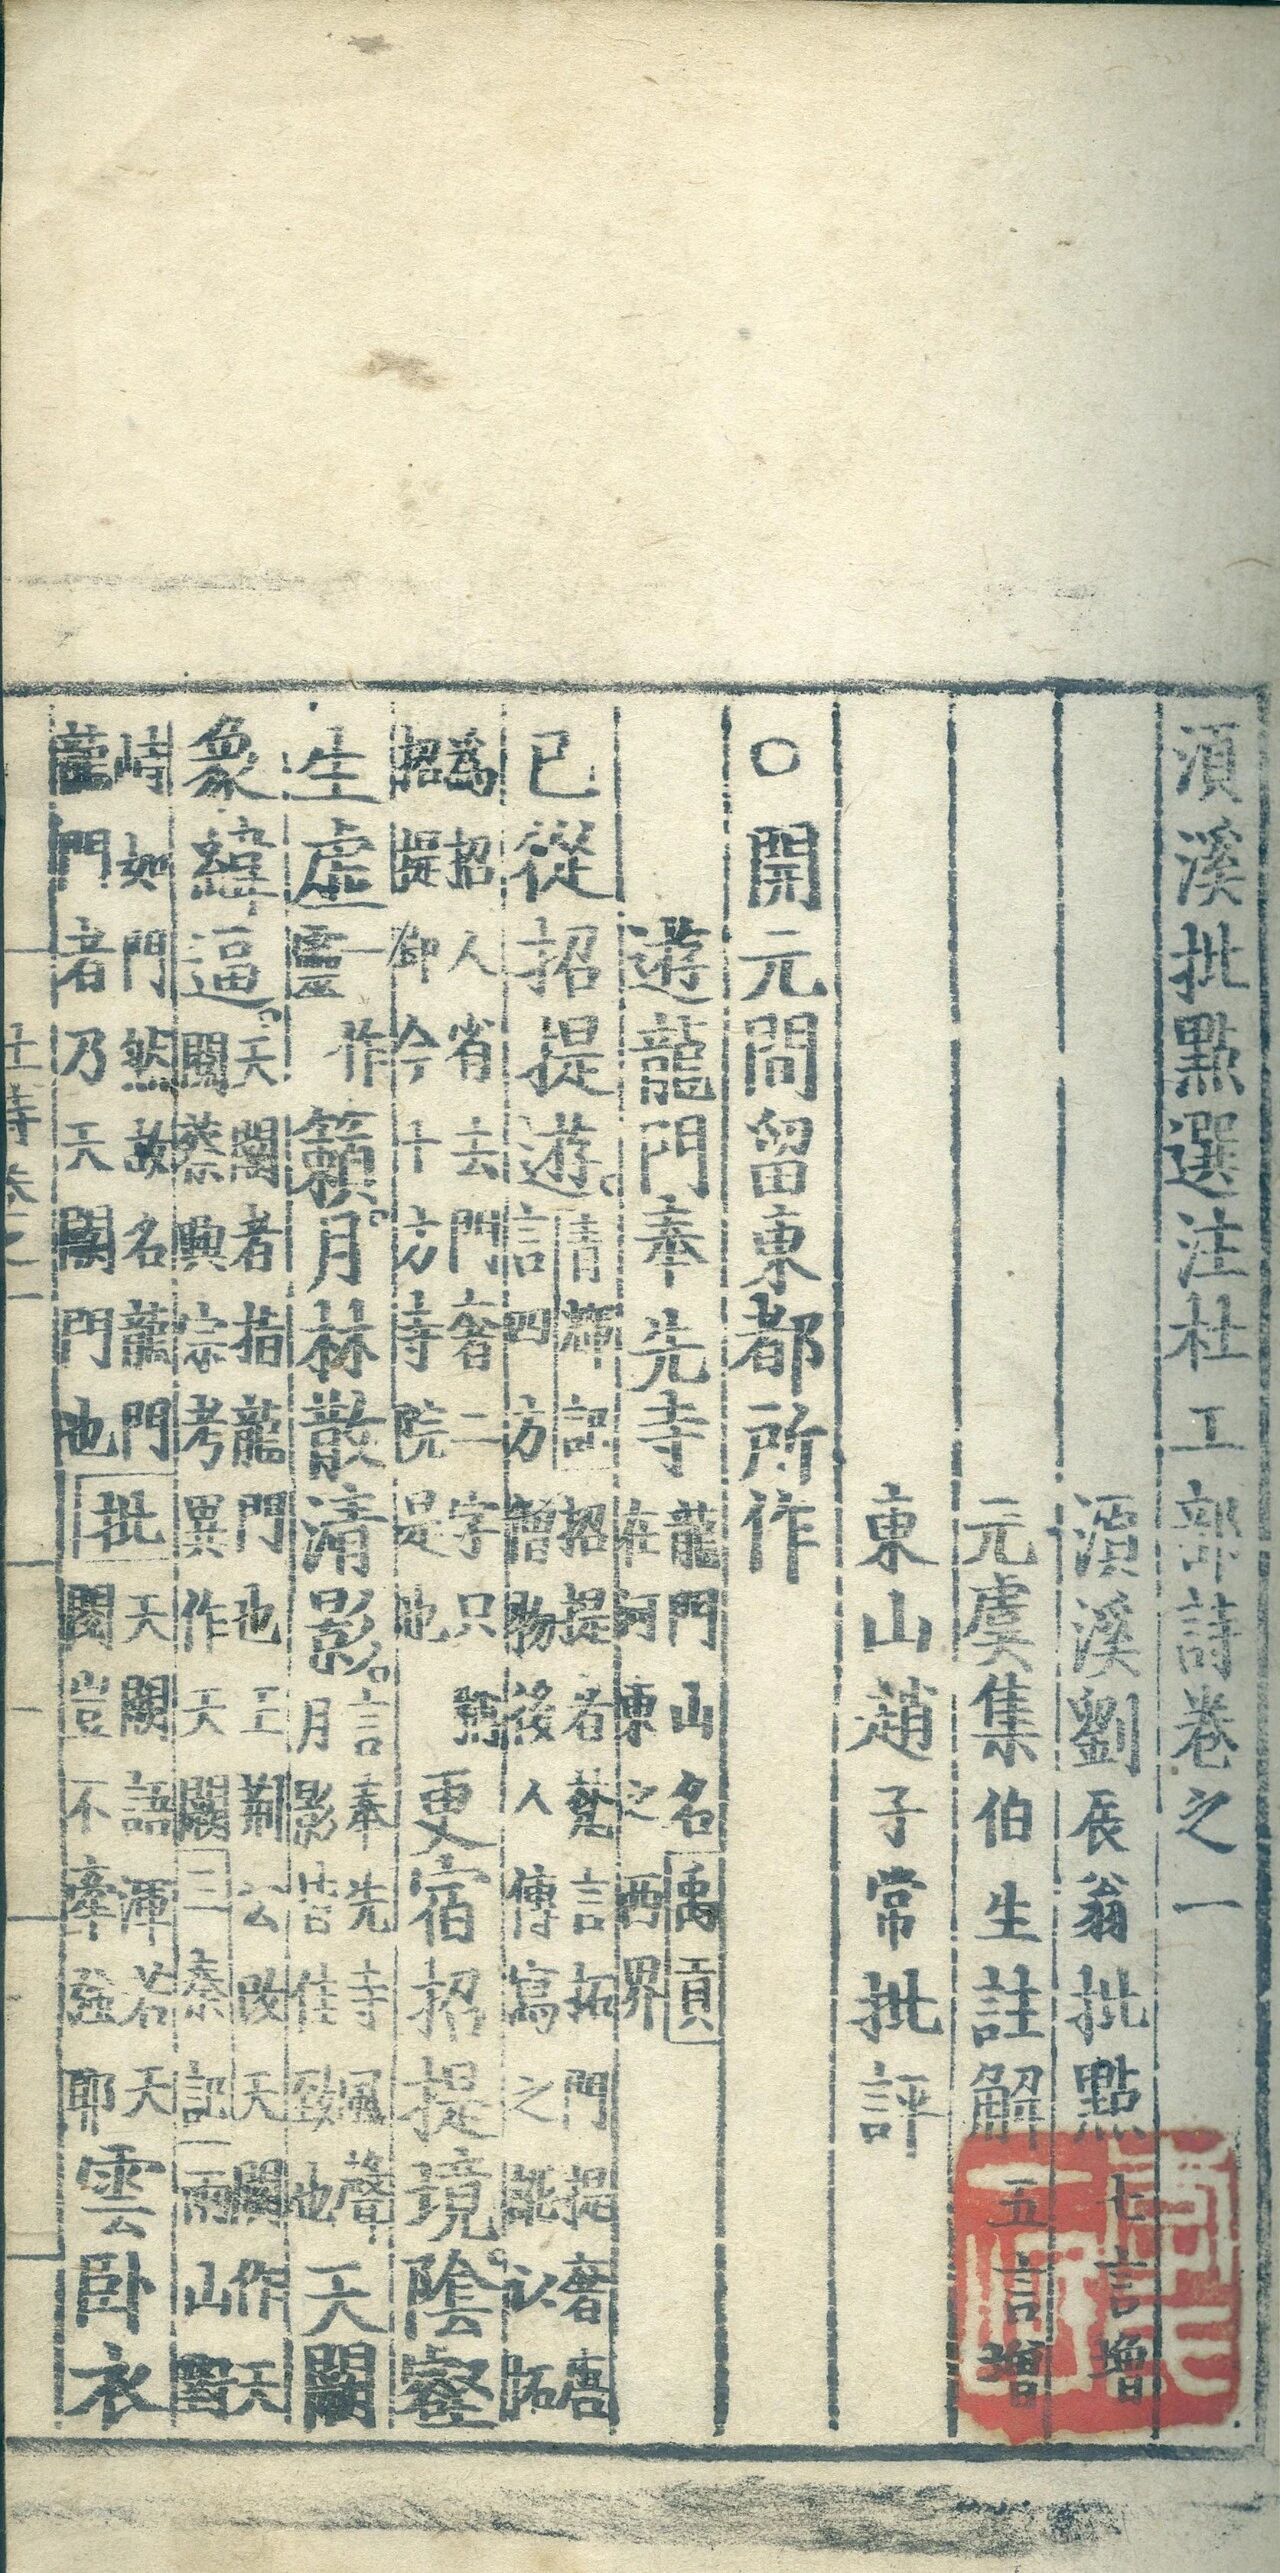 湏溪批點選注杜工部詩卷之一
湏溪劉辰翁批點 七言增
元虞集伯生註解 五言增
東山趙子常批評
○開元間留東都所作
遊龍門奉先寺 龍門山名禹貢在河東之西界
已從招提遊 清輝記招提者梵言拓門提奢唐言四方僧物後人傳寫之訛以拓
為招人省去門奢二字只稱招提卽今十方寺院是也 更宿招提境陰壑
生虛靈 一作 籟月林散清影 言奉先寺風聲月影皆佳致也 天闕
象緯逼 天闕者指龍門也王荆公改天闕作天閱蔡興宗考異作天闚三秦記兩山雙
峙如門然故名龍門龍門者乃天闕門也 批 天闕語渾若天閱豈不牽強耶 雲卧衣
杜詩卷之一